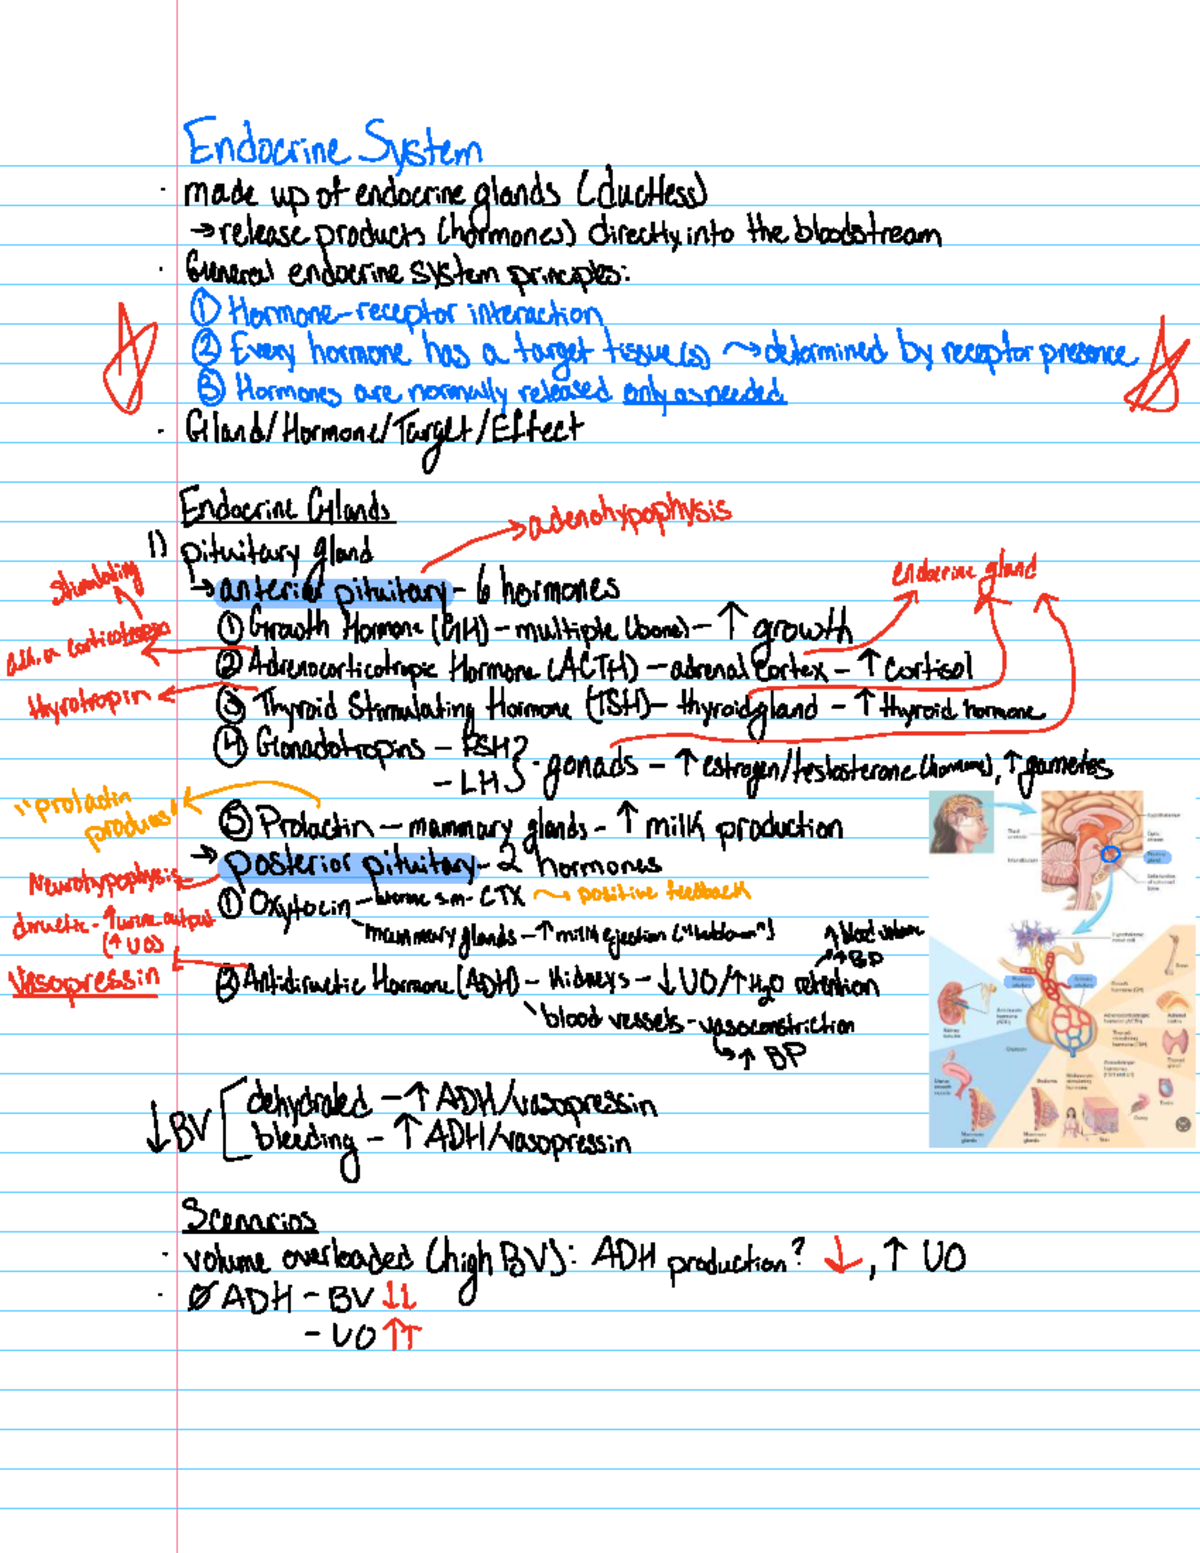 Endocrine System
· made up of endocrine glands (ductless)
→ release products (hormones) directly into the bloodstream
· General endocrine system principles:
① Hormone-receptor interaction
② Every hormone has a target tissue(s) → determined by receptor presence
③ Hormones are normally released only as needed
· Gland/Hormone/Target/Effect
Endocrine Glands
→ adenohypophysis
1) pituitary gland
endocrine gland
stimulating
→ anterior pituitary - 6 hormones
① Growth Hormone (GH) - multiple (bone) - ↑ growth
corticotropin
② Adrenocorticotropic Hormone (ACTH) - adrenal cortex - ↑ cortisol
thyrotropin
③ Thyroid Stimulating Hormone (TSH) - thyroid gland - ↑ thyroid hormone
④ Gonadotropins - FSH
- LH } - gonads - ↑ estrogen/testosterone (hormones), ↑ gametes
"prolactin
produces"
⑤ Prolactin - mammary glands - ↑ milk production
→ posterior pituitary - 2 hormones
Neurohypophysis
① Oxytocin - uterine s.m. - CTX → positive feedback
diuretic - ↑ urine output
(↑ UO)
mammary glands - ↑ milk ejection ("letdown")
↑ blood volume
↑ BP
Vasopressin
② Antidiuretic Hormone (ADH) - kidneys - ↓ UO/↑ H₂O retention
blood vessels - vasoconstriction
→ ↑ BP
↓ BV [ dehydrated - ↑ ADH/vasopressin
bleeding - ↑ ADH/vasopressin
Scenarios
· volume overloaded (high BV): ADH production? ↓, ↑ UO
· Ø ADH - BV ↓↓
- UO ↑↑